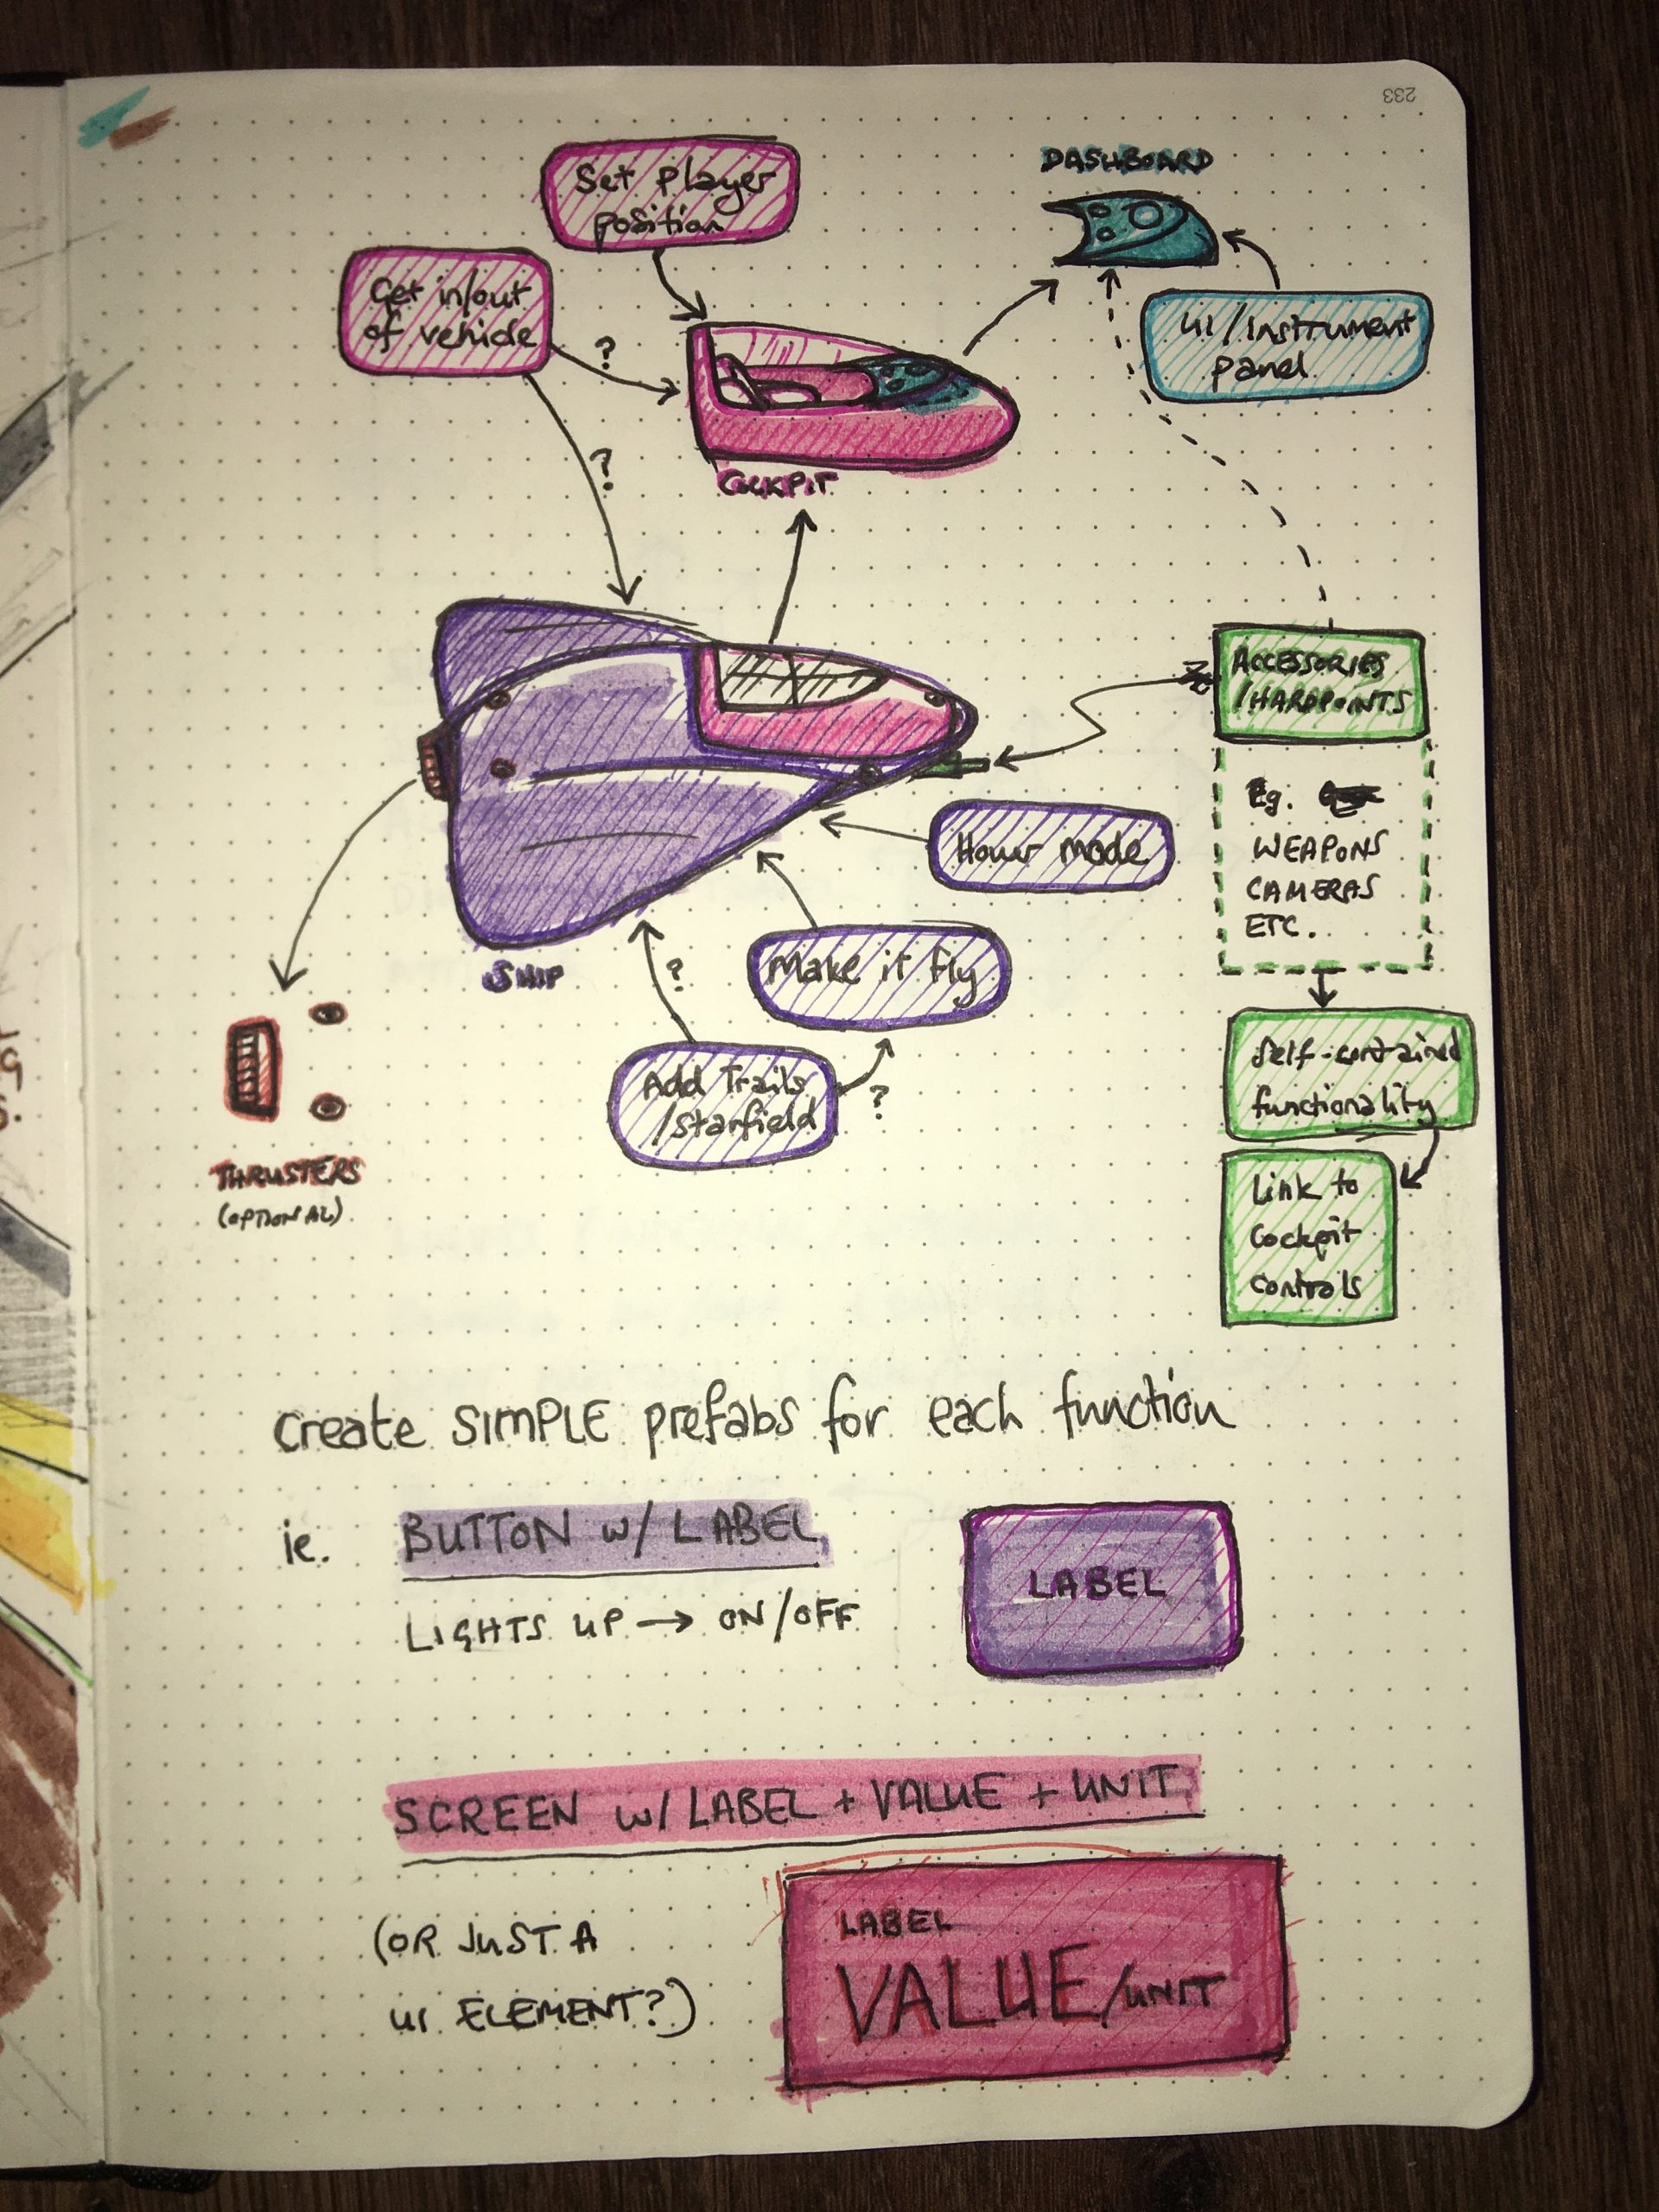 233
DASHBOARD
Set player
position
Get in/out
of vehicle
?
UI/Instrument
panel
?
COCKPIT
ACCESSORIES
/HARDPOINTS
Eg.
WEAPONS
CAMERAS
ETC.
Hover mode
Make it fly
SHIP
?
Add Trails
/starfield
?
Self-contained
functionality
THRUSTERS
(OPTIONAL)
Link to
Cockpit
controls
Create SIMPLE prefabs for each function
ie.
BUTTON w/ LABEL
LABEL
LIGHTS UP → ON/OFF
SCREEN w/ LABEL + VALUE + UNIT
(OR JUST A
UI ELEMENT?)
LABEL
VALUE/UNIT